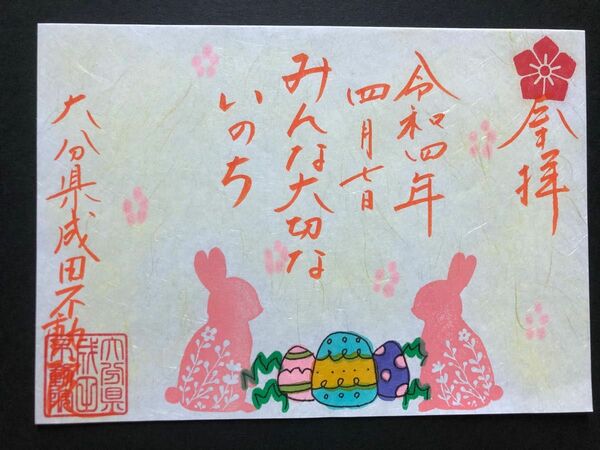 奉拝
令和四年
四月七日
みんな大切な
いのち
大分県成田不動
大分県
成田